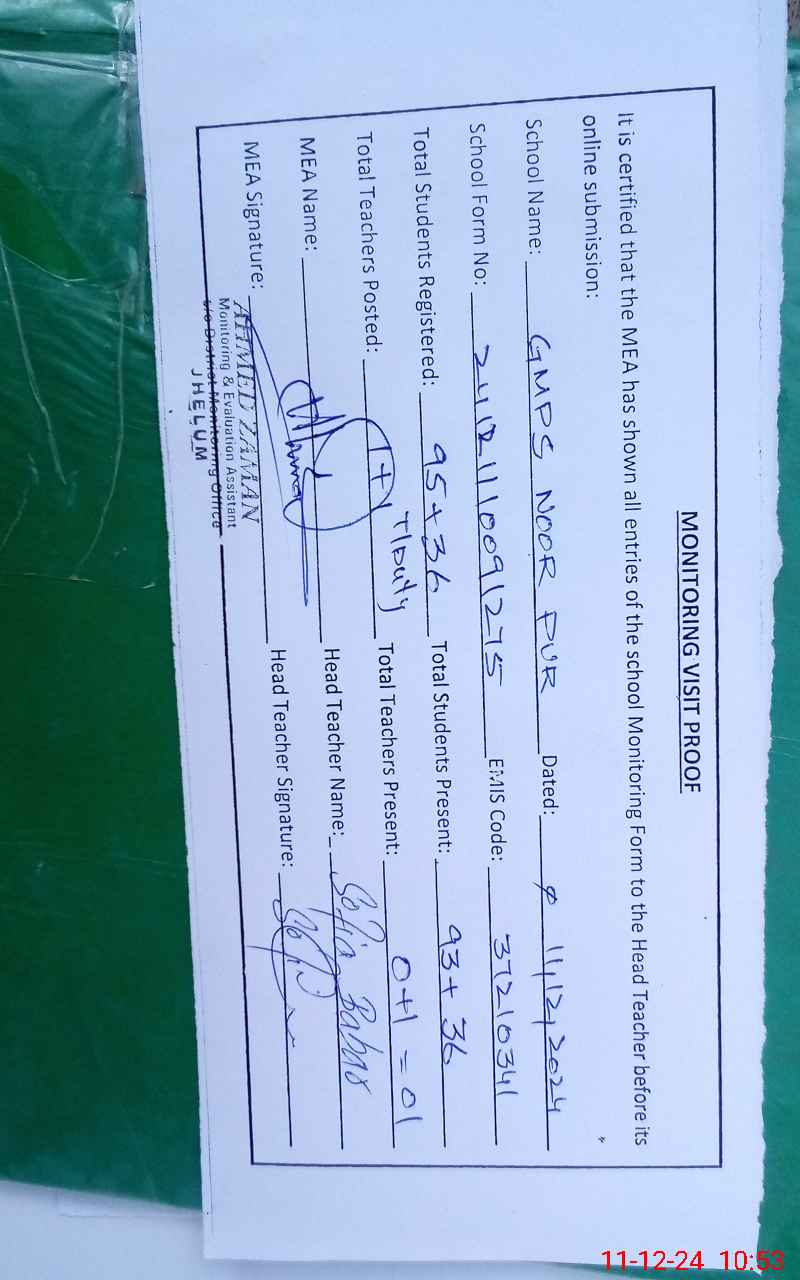 MONITORING VISIT PROOF
It is certified that the MEA has shown all entries of the school Monitoring Form to the Head Teacher before its
online submission:
School Name: GMPS NOOR PUR Dated: 11,12,2024
School Form No: EMIS Code: 37210341
Total Students Registered: 95+36 Total Students Present: 93+36
T/Duty
Total Teachers Posted: Total Teachers Present: 0+1=01
MEA Name: Head Teacher Name: Sofia Babar
MEA Signature: Head Teacher Signature:
AHMED ZAMAN
Monitoring & Evaluation Assistant
o/o District Monitoring Office
JHELUM
11-12-24 10:53